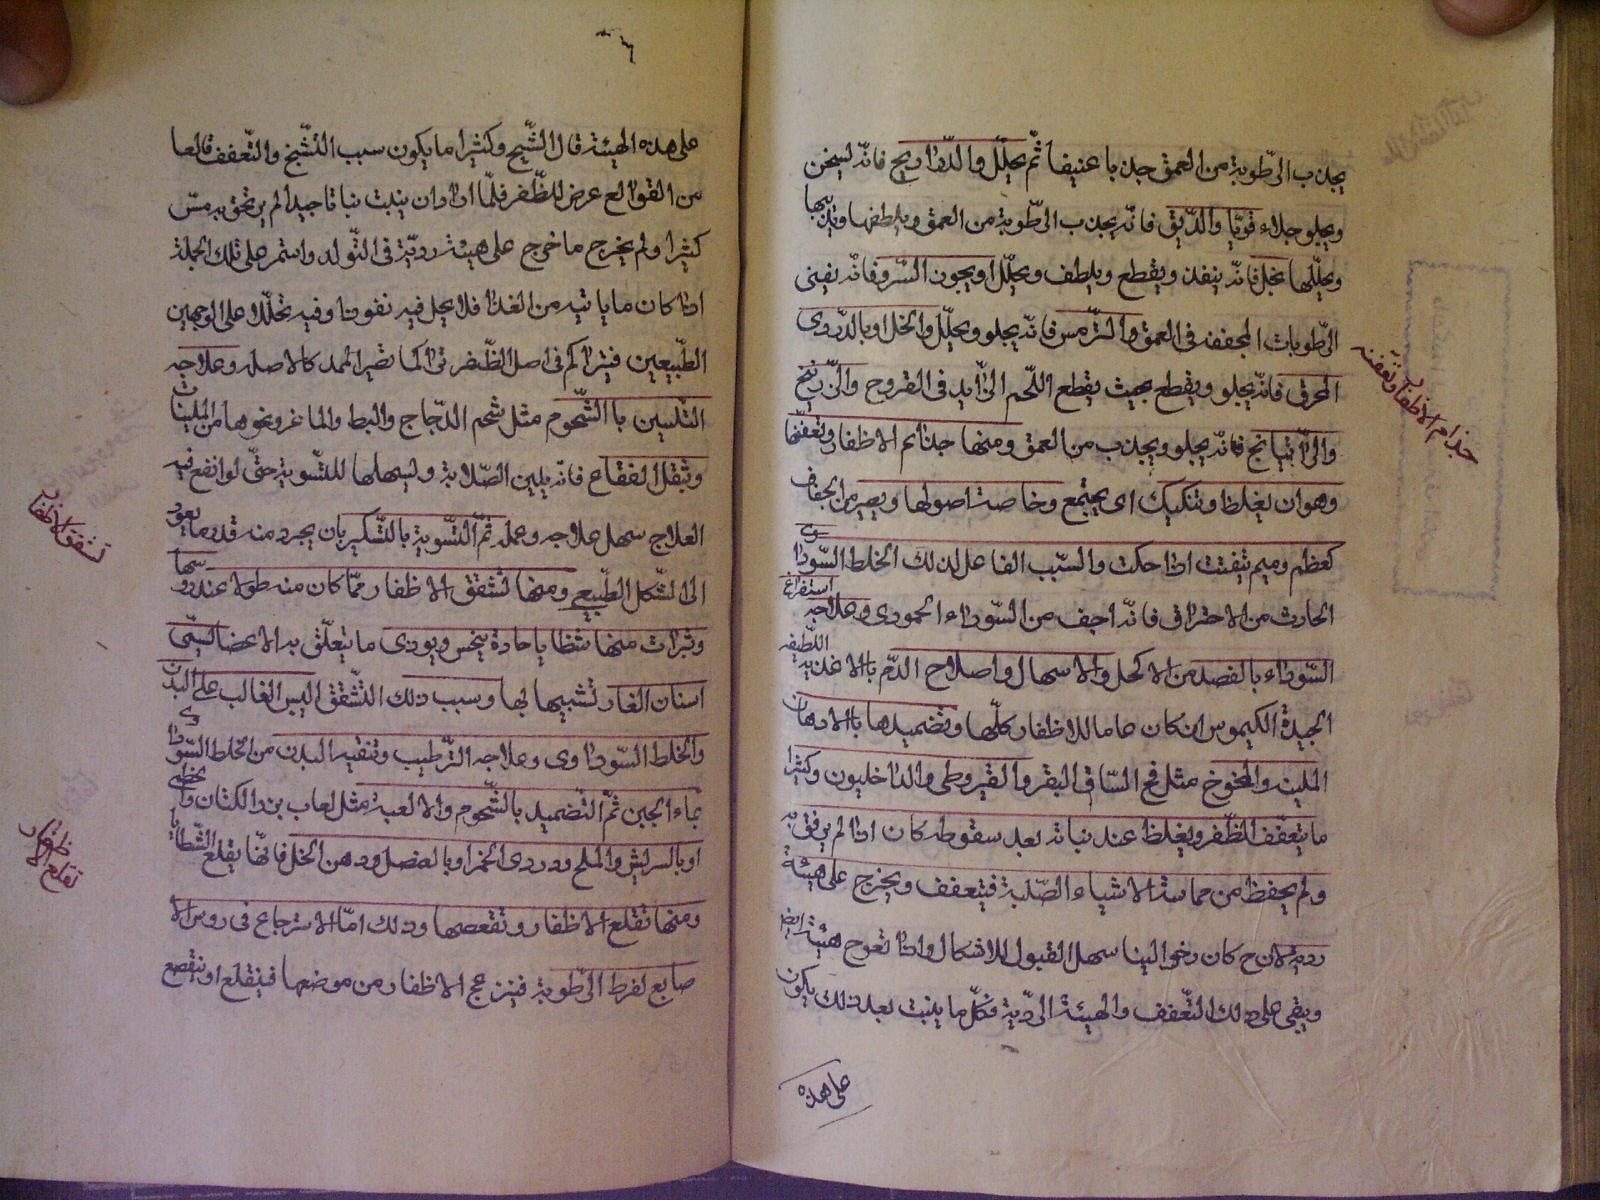 يجذب الرّطوبة من العمق جذبا عنيفا ثمّ يحلّل والذّراريح فانّه يسخن
ويجلو جلاء قويّا والدّبق فانّه يجذب الرّطوبة من العمق ويلطفها ويذيبها
ويحلّلها بخل فانّه ينفذ ويقطع ويلطف ويحلّل او بجوز السّرو فانّه يفنى
الرّطوبات المجففه فى العمق والتّرمس فانّه يجلو ويحلّل والخل او بالدّردى
المحرق فانّه يجلو ويقطع بحيث يقطع اللّحم الزّايد فى القروح والزّرنيخ
والرّاتيانج فانّه يجلو ويجذب من العمق ومنها جذام الاظفار وتعفّنها
وهو ان يغلظ وتتكبك اى يجتمع وخاصة اصولها ويصير من الجفاف
كعظم رميم تتفتت اذا حكت والسّبب الفاعل لذلك الخلط السّوداوى
الحادث من الاحتراق فانّه اجف من السّوداء الجمودى وعلاجه استفراغ
السّوداء بالفصد من الاكحل والاسهال واصلاح الدّم بالاغذيه اللّطيفه
الجيدة الكيموس ان كان عاما للاظفار كلّها وتضميدها بالادهان
الملينه والمخوخ مثل مخ السّاق البقر والقيروطى والداخليون وكثيرا
ما يتعقّف الظّفر ويغلظ عند نباته بعد سقوطه كان اذا لم يرفق به
ولم يحفظ من مماسة الاشياء الصّلبة فيتعقف ويخرج على هيئة
ردية لان ح كان رخوا لينا سهل القبول للاشكال واذا تعوج هيئة ايضا
ويبقى على ذلك التّعقف والهيئة الرّدية فكلّ ما ينبت بعد ذلك يكون
على هذه
جذام الاظفار وتعفنه
على هذه الهيئة قال الشّيخ وكثيرا ما يكون سبب التشّنج والتّعقف قالعا
من القوالع عرض للظّفر فلمّا اراد ان ينبت نباتا جيدا لم يرتحق به مسّ
كثيرا ولم يخرج ما خرج على هيئة رديّة فى التّولد واستمر على تلك الجملة
اذا كان ما ياتيه من الغذا فلا يجل فيه نفوذا وفيه تحلّلا على الوجهين
الطّبيعين فيتراكم فى اصل الظّفر تراكما تصير الممد كالاصله وعلاجه
التّليين باالشّحوم مثل شحم الدّجاج والبط والماغر ونحوها من الملينات
وبثفل الفقاع فانّه يلين الصّلابة ويسهلها للتّسوية حتّى لو انقع فيه
العلاج سهل علاجه وعمله ثمّ التّسوية بالتّكسير بان يجرد منه قدر ما يعود
الى الشّكل الطّبيعى ومنها تشقق الاظفار ممّا كان منه طولا عند روسها
وتبرات منها شظايا حادة ينخس ويوذى ما يتعلّق به الاعضا ليسمّى
اسنان الفار تشبيها لها وسبب ذلك التشّقق اليبس الغالب على البدن
والخلط السّوداوى وعلاجه التّرطيب وتنقيه البدن من الخلط السّوداوى
بماء الجبن ثمّ التّضميد بالشّحوم والالعبه مثل لعاب بزر الكتان والخطمى
او بالسريش والملح ودردى الخمر او بالعنصل ودهن الخل فانّها يقلع الشّظايا
ومنها تقلع الاظفار وتقعصها وذلك امّا لاسترجاع فى روس الا
صابع لفرط الرّطوبة فينزعج الاظفار من موضعها فينقلع او ينقصع
تشقق الاظفار
تقلع الاظفار